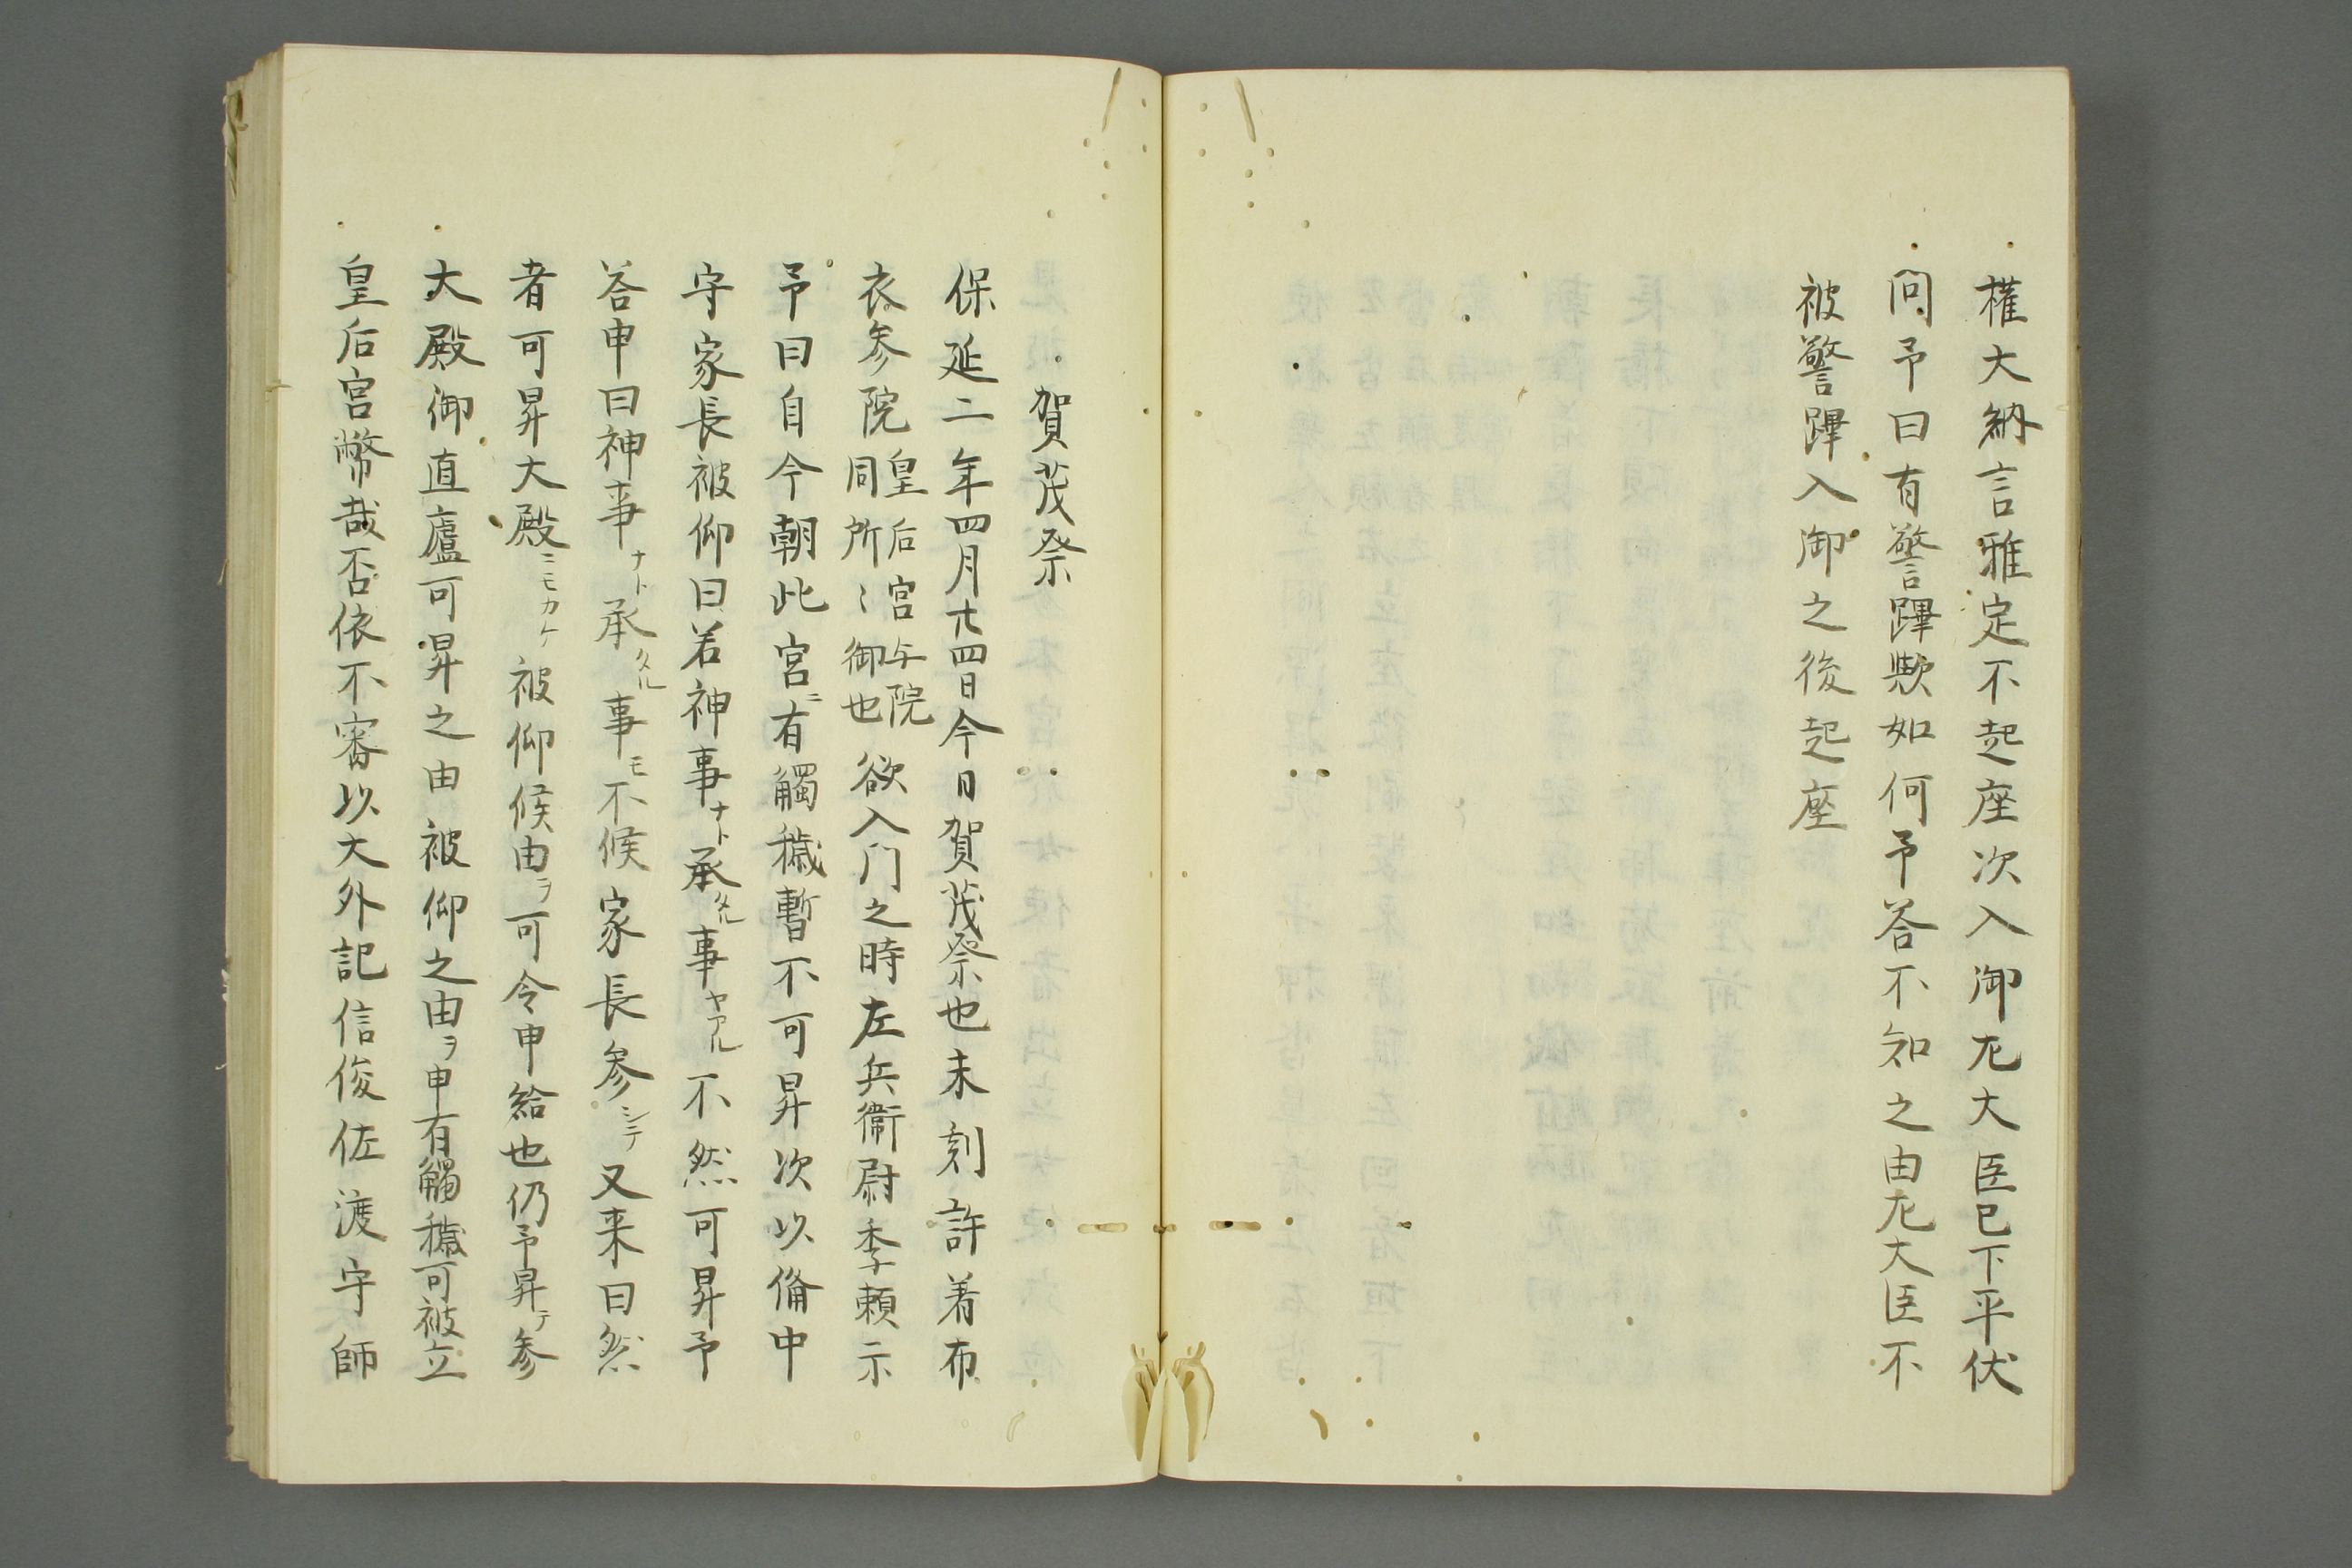 権大納言雅定不起座次入御左大臣已下平伏
問予曰有警蹕歟如何予答不知之由左大臣不
被警蹕入御之後起座
賀茂祭
保延二年四月廿四日今日賀茂祭也未刻許着布
衣参院皇后宮与院同所〻御也欲入门之時左兵衞尉季頼示
予曰自今朝此宮ニ有觸穢暫不可昇次以俻中
守家長被仰曰若神事ナト承タル事ヤアル不然可昇予
答申曰神事ナト承タル事モ不候家長参シテ又来曰然
者可昇大殿ニモカケ被仰候由ヲ可令申給也仍予昇テ参
大殿御直廬可昇之由被仰之由ヲ申有觸穢可被立
皇后宮幣哉否依不審以大外記信俊佐渡守師